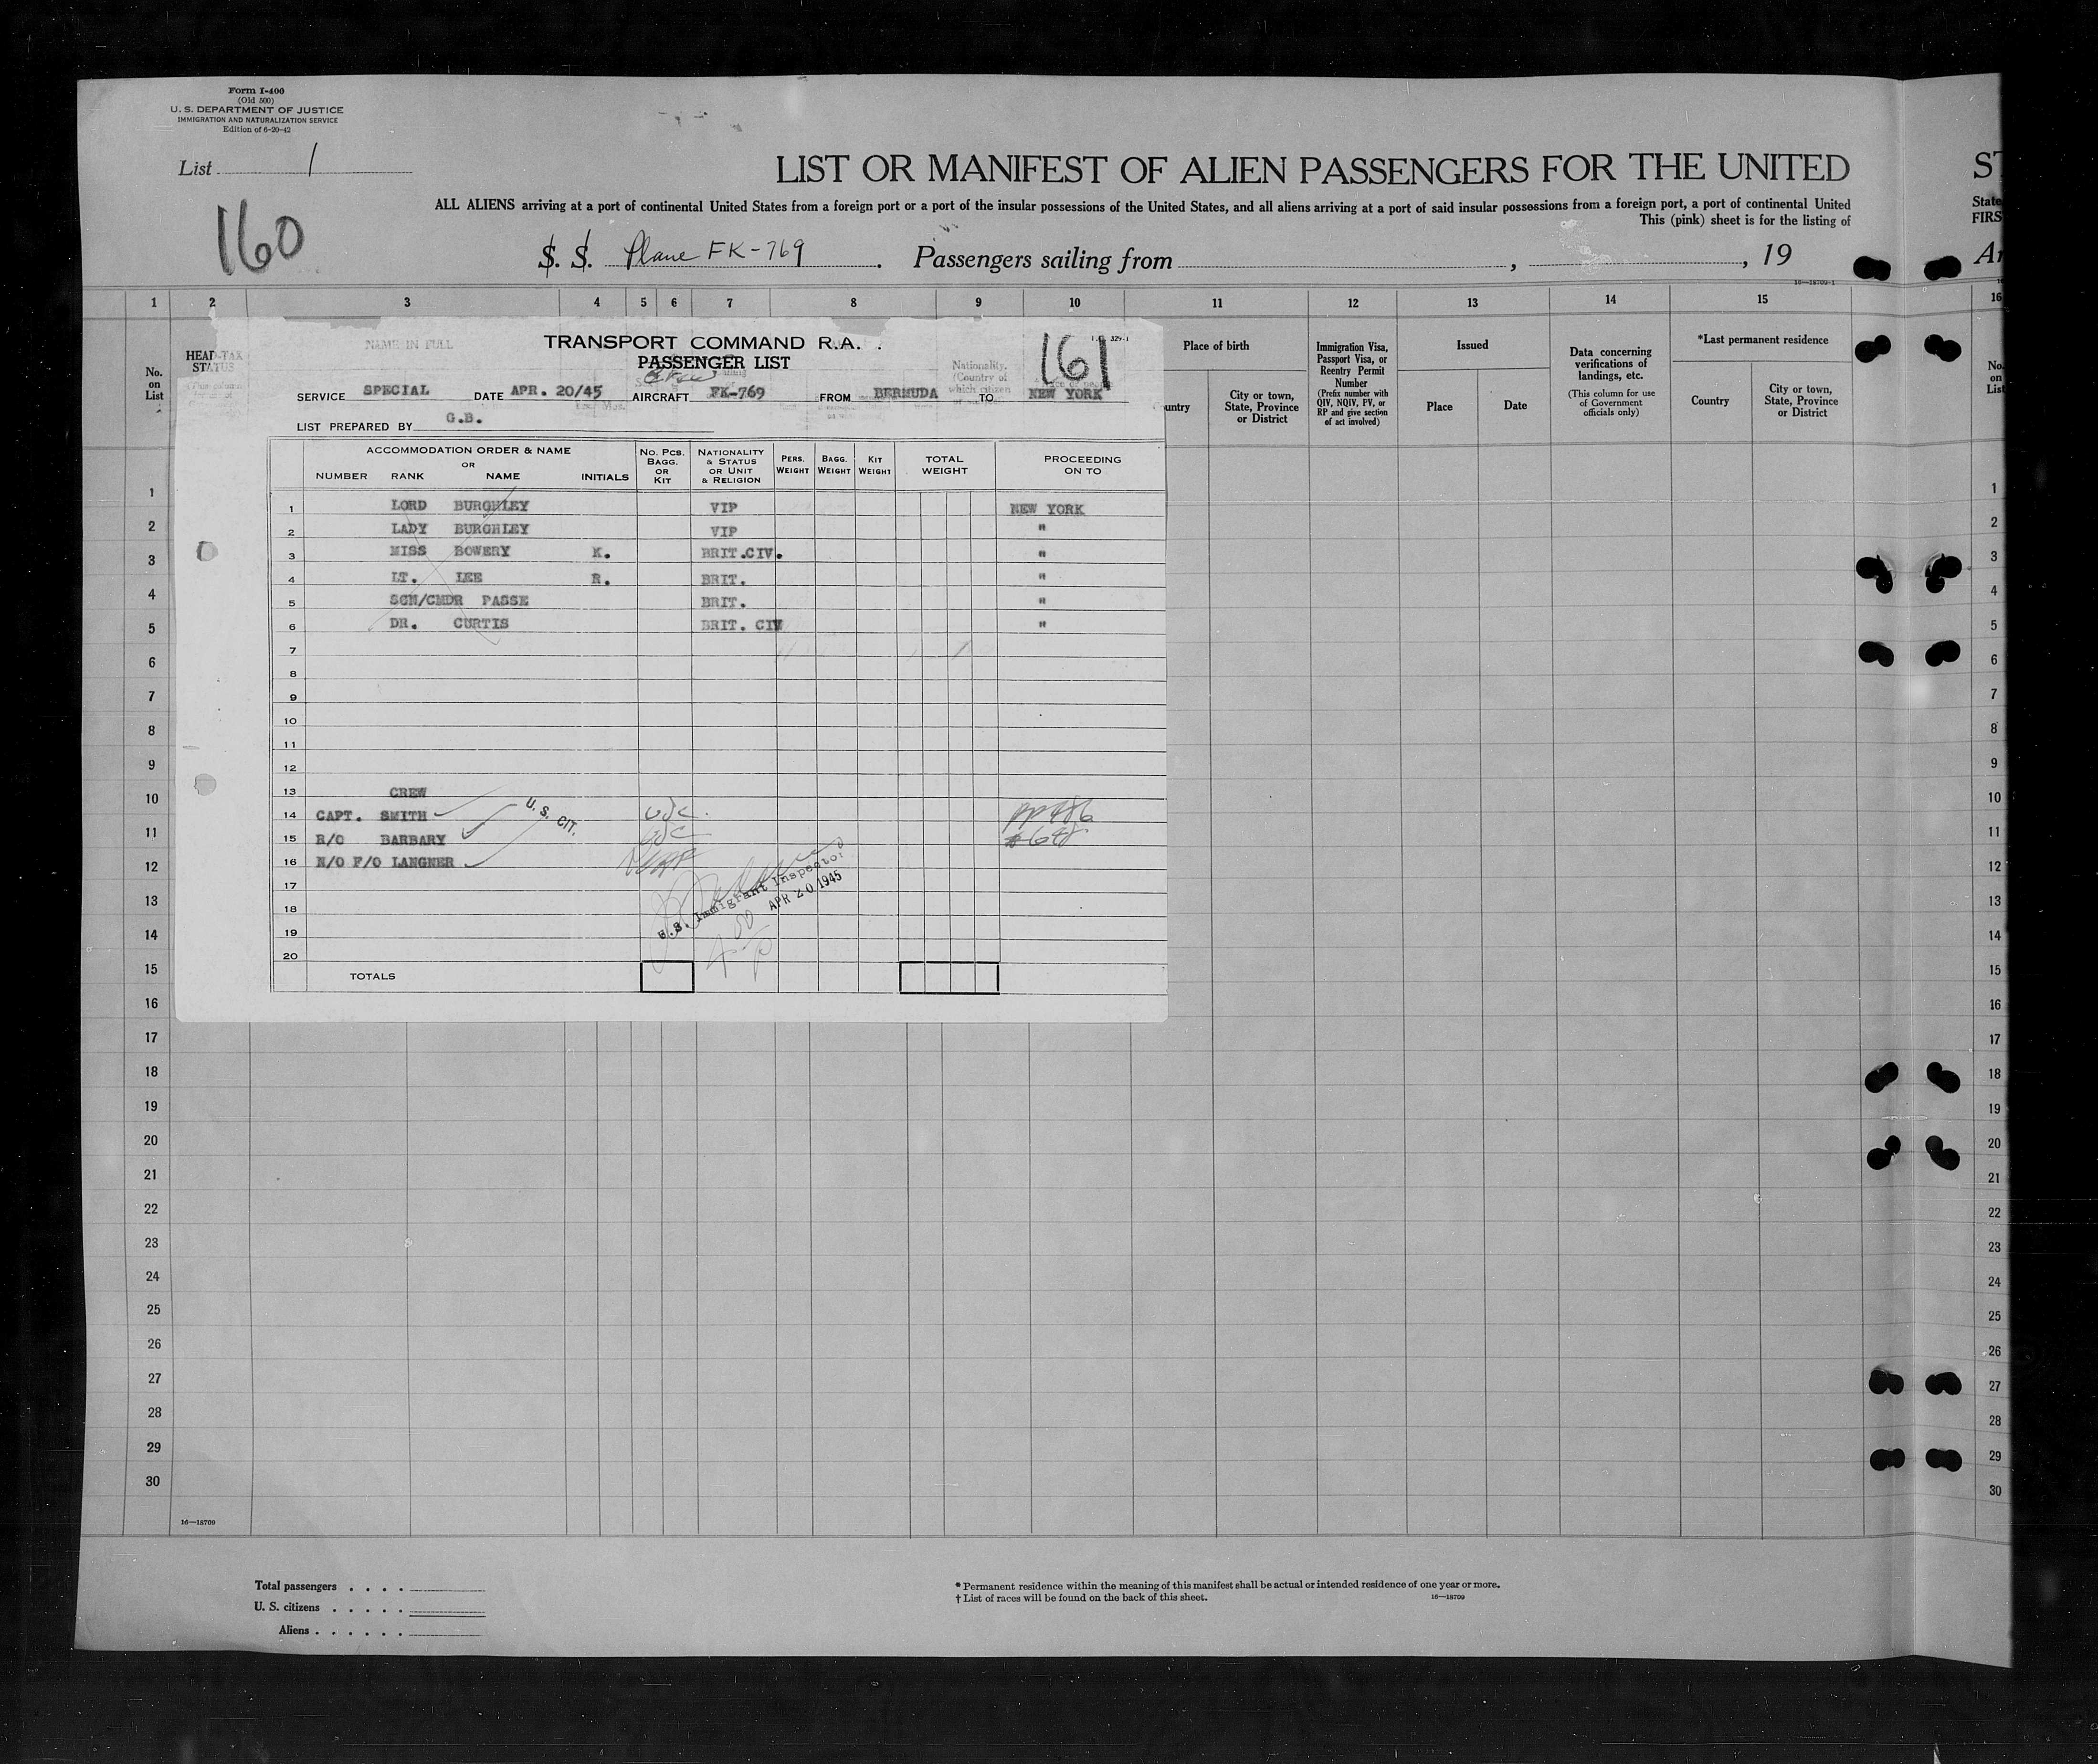 Form I-400
(Old 500)
U. S. DEPARTMENT OF JUSTICE
IMMIGRATION AND NATURALIZATION SERVICE
Edition of 6-20-42
List 1
160
LIST OR MANIFEST OF ALIEN PASSENGERS FOR THE UNITED
ST
ALL ALIENS arriving at a port of continental United States from a foreign port or a port of the insular possessions of the United States, and all aliens arriving at a port of said insular possessions from a foreign port, a port of continental United
State
This (pink) sheet is for the listing of
FIRS
S. S. Plane FK-769. Passengers sailing from , , 19
Ar
16—18709-1
1 2 3 4 5 6 7 8 9 10 11 12 13 14 15 16
No. on List
HEAD-TAX STATUS
NAME IN FULL
Nationality. (Country of which citizen
Place of birth
untry
City or town, State, Province or District
Immigration Visa, Passport Visa, or Reentry Permit Number
(Prefix number with QIV, NQIV, PV, or RP and give section of act involved)
Issued
Place
Date
Data concerning verifications of landings, etc.
(This column for use of Government officials only)
*Last permanent residence
Country
City or town, State, Province or District
No. on List
TRANSPORT COMMAND R.A. .
161
PASSENGER LIST
Crew
SERVICE SPECIAL DATE APR. 20/45 AIRCRAFT FK-769 FROM BERMUDA TO NEW YORK
LIST PREPARED BY G.B.
ACCOMMODATION ORDER & NAME
OR
NUMBER RANK NAME INITIALS
No. Pcs. Bagg. or Kit
Nationality & Status or Unit & Religion
Pers. Weight
Bagg. Weight
Kit Weight
TOTAL WEIGHT
PROCEEDING ON TO
1 LORD BURGHLEY VIP NEW YORK
2 LADY BURGHLEY VIP "
3 MISS BOWERY K. BRIT.CIV. "
4 LT. LEE R. BRIT. "
5 SGN/CMDR PASSE BRIT. "
6 DR. CURTIS BRIT. CIV "
7
8
9
10
11
12
13 CREW
14 CAPT. SMITH U. S. CIT.
15 R/O BARBARY
16 N/O F/O LANGNER
17
18
19
20
U.S. Immigrant Inspector
APR 20 1945
TOTALS
1 1
2 2
3 3
4 4
5 5
6 6
7 7
8 8
9 9
10 10
11 11
12 12
13 13
14 14
15 15
16 16
17 17
18 18
19 19
20 20
21 21
22 22
23 23
24 24
25 25
26 26
27 27
28 28
29 29
30 30
16—18709
Total passengers . . . .
U. S. citizens . . . . .
Aliens . . . . . .
* Permanent residence within the meaning of this manifest shall be actual or intended residence of one year or more.
† List of races will be found on the back of this sheet. 16—18709